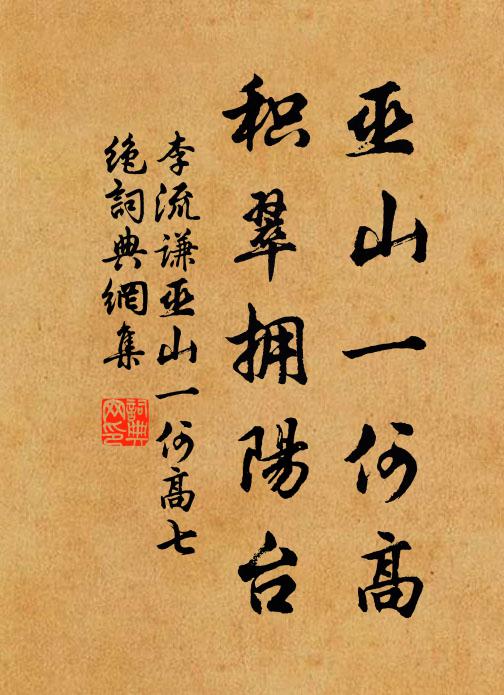 巫山一何高
积翠拥陽台
李流谦巫山一何高七
绝詞典網集
詞典
网印